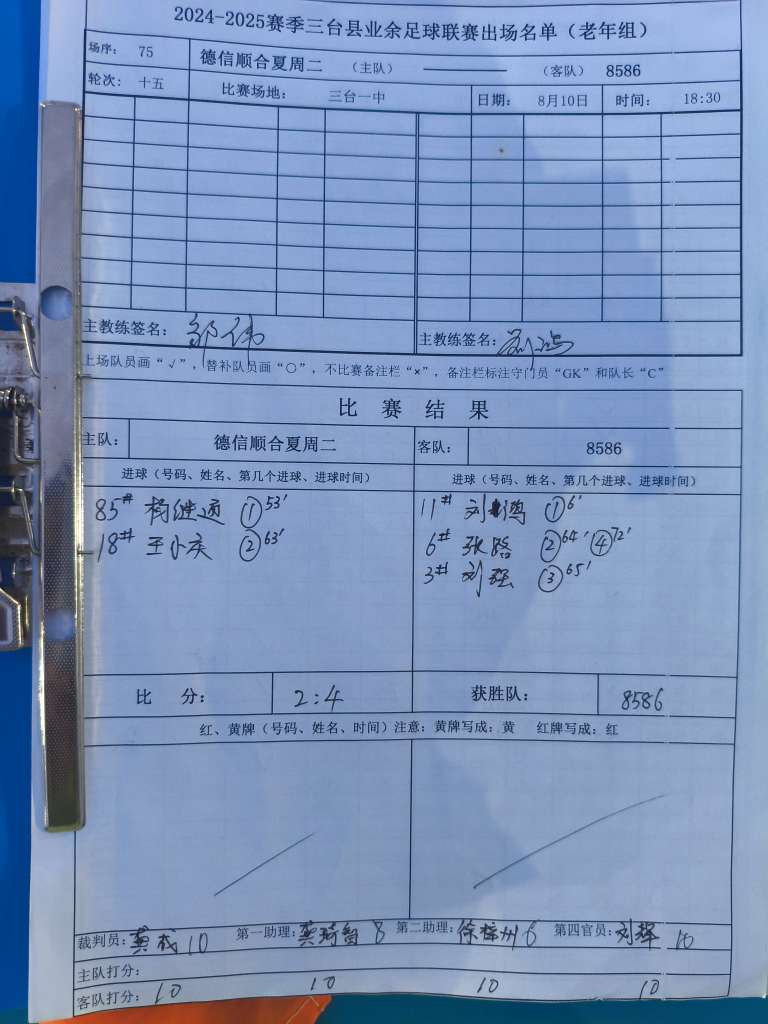 2024-2025赛季三台县业余足球联赛出场名单（老年组）
场序： 75 德信顺合夏周二 （主队） （客队） 8586
轮次： 十五 比赛场地： 三台一中 日期： 8月10日 时间： 18:30
主教练签名： 邹伟 主教练签名：
上场队员画“√”，替补队员画“○”，不比赛备注栏“×”，备注栏标注守门员“GK”和队长“C”
比 赛 结 果
主队： 德信顺合夏周二 客队： 8586
进球（号码、姓名、第几个进球、进球时间） 进球（号码、姓名、第几个进球、进球时间）
85# 杨继通 ①53′ 11# 刘鸿 ①6′
18# 王小庆 ②63′ 6# 张路 ②64′ ④72′
3# 刘强 ③65′
比 分： 2:4 获胜队： 8586
红、黄牌（号码、姓名、时间）注意：黄牌写成：黄 红牌写成：红
裁判员： 龚成 10 第一助理： 龚琦智 8 第二助理： 徐梓州 6 第四官员： 刘择 10
主队打分：
客队打分： 10 10 10 10